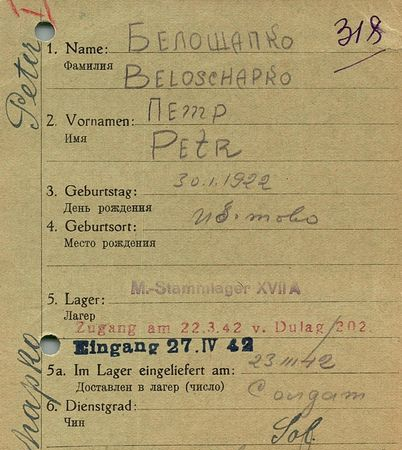 Peter
318
1. Name: БЕЛОЩАПКО
Фамилия
BELOSCHAPKO
2. Vornamen: ПЕТР
Имя
PETR
3. Geburtstag: 30.1.1922
День рождения
4. Geburtsort:
Место рождения
M.-Stammlager XVII A
5. Lager:
Лагер
Zugang am 22.3.42 v. Dulag 202.
Eingang 27. IV 42
5a. Im Lager eingeliefert am: 23 III 42
Доставлен в лагер (число)
6. Dienstgrad: Солдат
Чин
Sol.